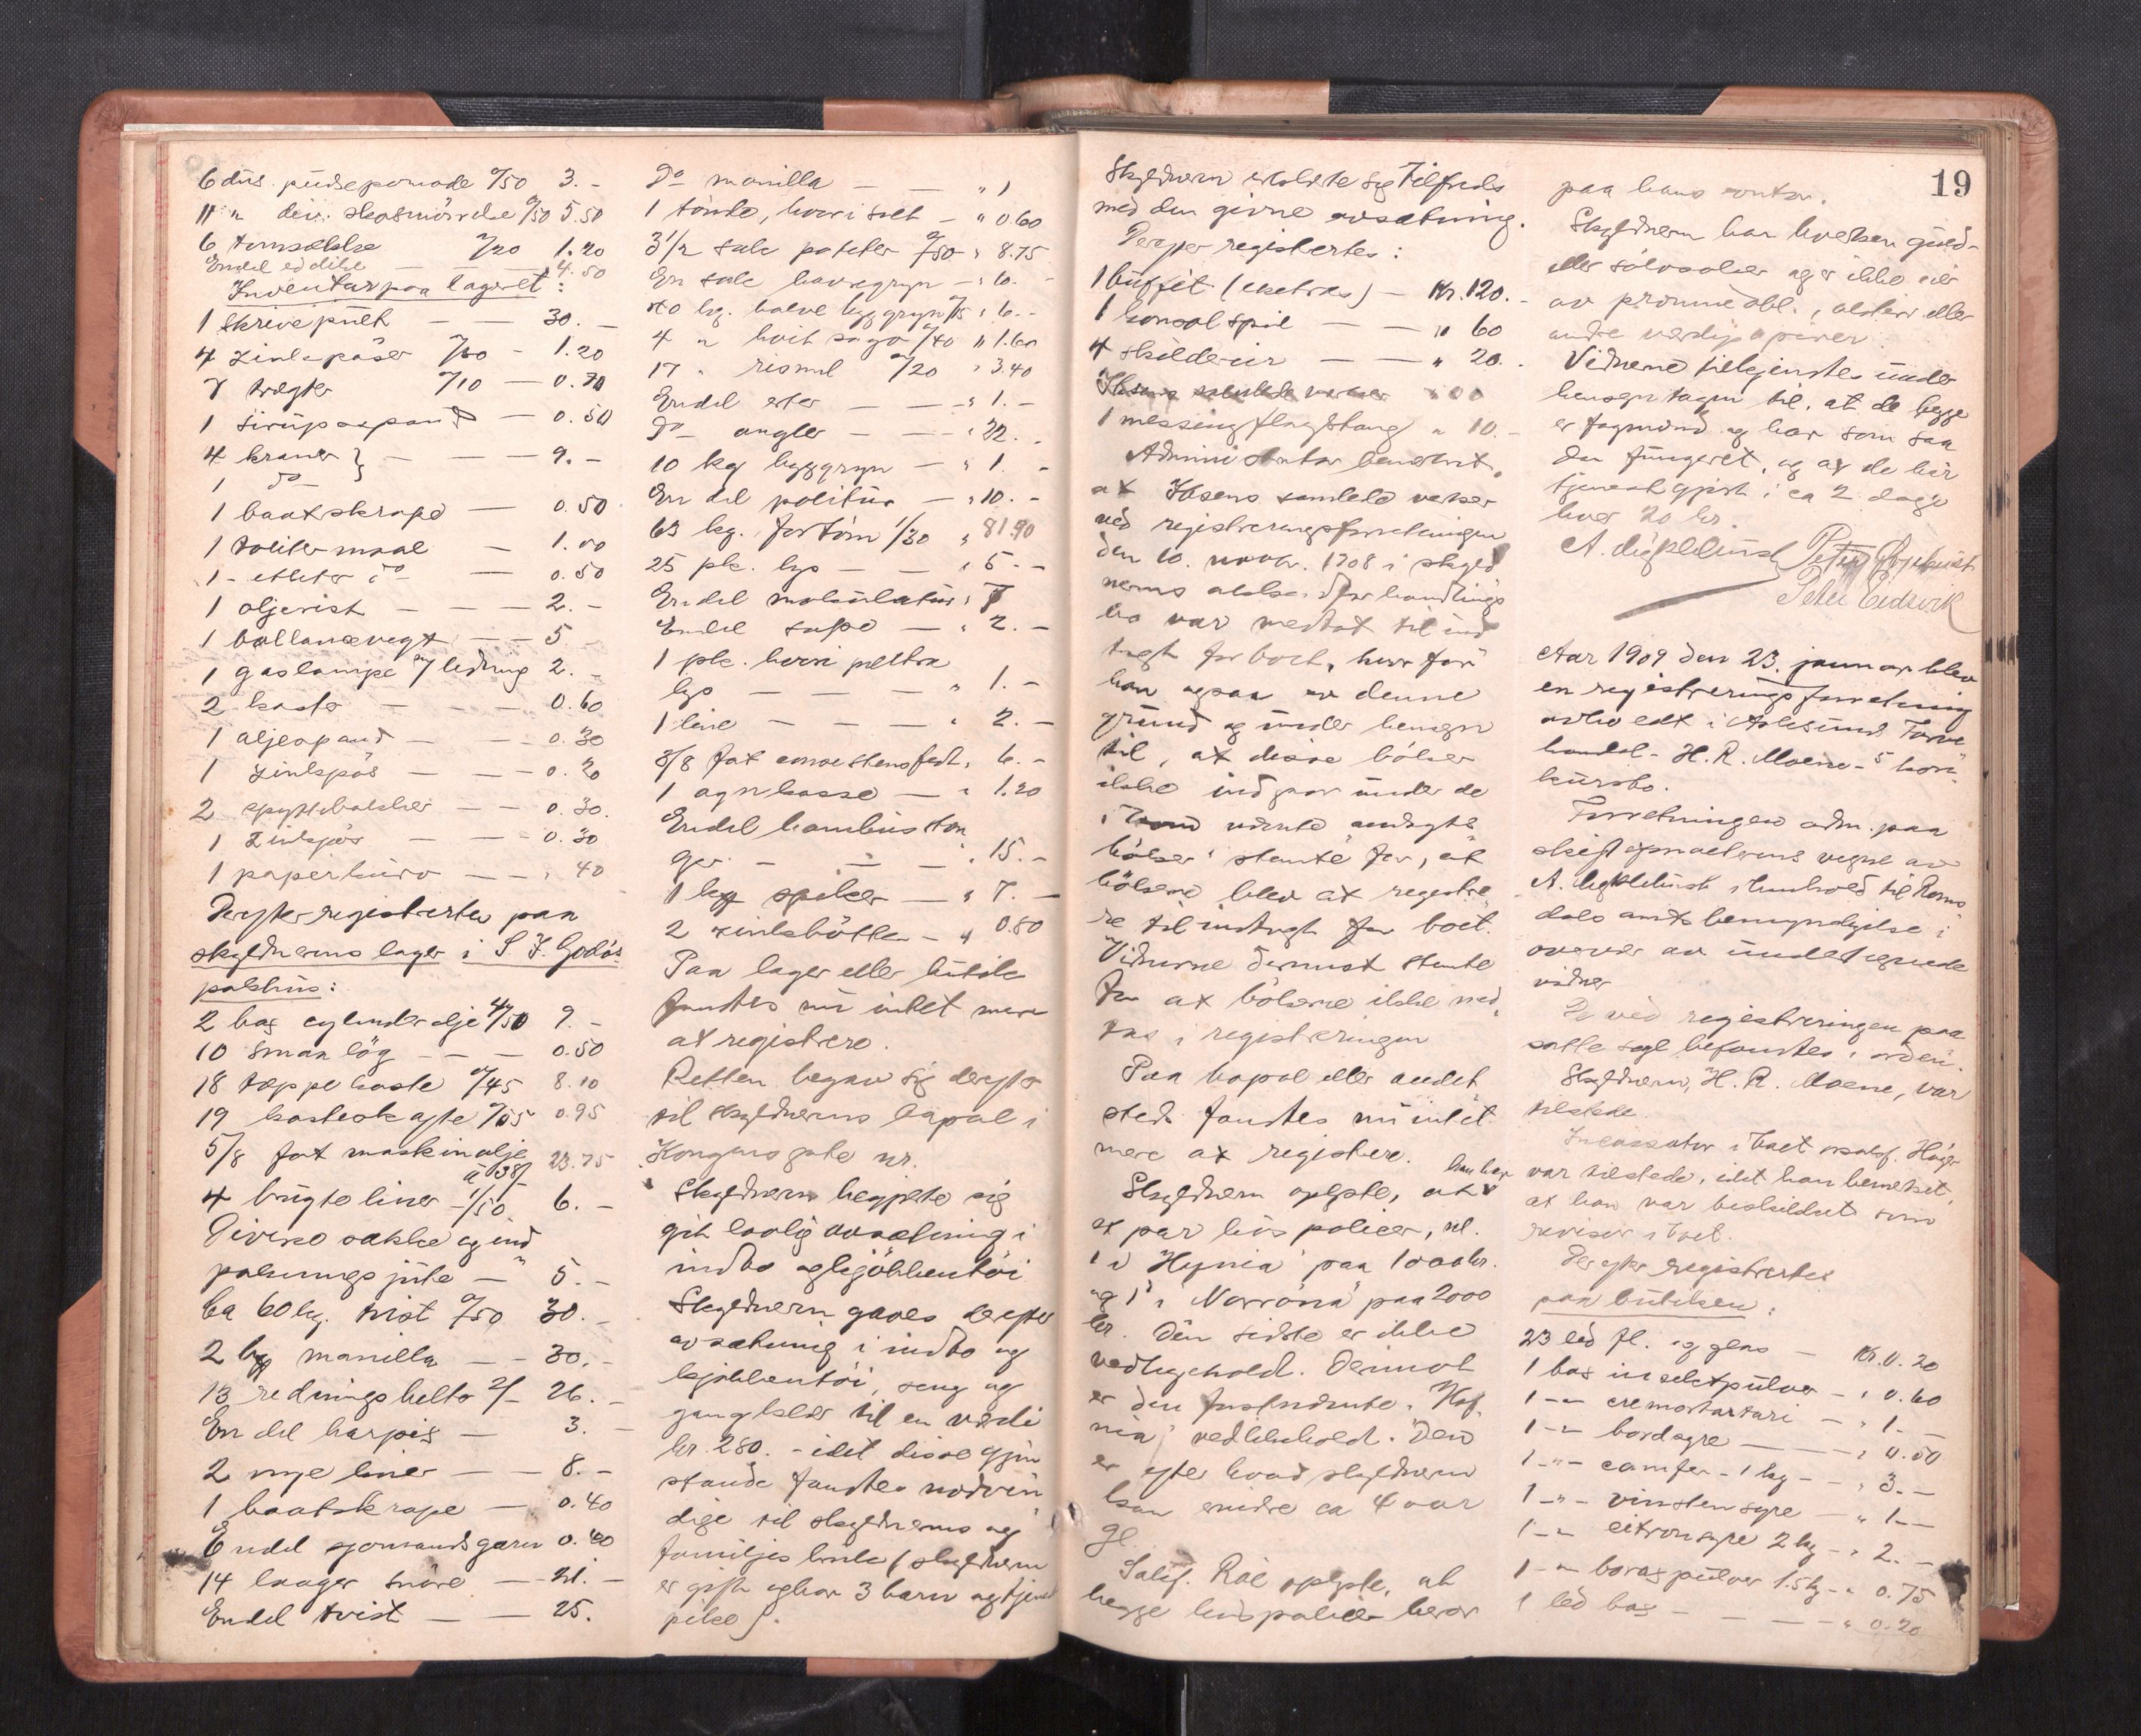 6 dus. pudsepomade %50 3.-
11 " div. skosmörrelse %50 5.50
6 tomsække %20 1.20
Endel eddike — — 4.50
Inventar paa lageret:
1 skrivepult — — 30.-
4 zinkspöser %30 - 1.20
7 trægter %10 — 0.70
1 sirupsspand — 0.50
4 kraner } — — 9.-
1 do
1 baatskrape — 0.50
1 toliter maal — 1.00
1 - etliter do — 0.50
1 oljerist — — — 2.-
1 ballancevegt — — 5.-
1 gaslampe m/ ledning 2.-
2 koster — — — 0.60
1 oljespand — — 0.30
1 zinkspös — — — 0.20
2 spyttebakker — — 0.30.
1 zinkspös — — — 0.30
1 papirkurv — — " 40
Derefter registrertes paa
skyldnerens lager i S. J. Godös
pakhus:
2 bax cylinderolje 4/50 9.-
10 smaa lög — — — 0.50
18 tæppekoste %45 8.10
19 kosteskafte %05 0.95
5/8 fat maskinolje
à 38/ 23.75
4 brugte liner 1/50 6.-
Diverse sække og ind
pakningsjute — " 5.-
Ca 60 kg. tvist %50 30.-
2 kg manilla — — 30.-
13 redningsbelte 2/- 26.-
En del harpix — 3.-
2 nye liner — — 8.-
1 baatskrape — 0.40
Endel sjømandsgarn 0.40
14 laager snöre — 21.-
Endel tvist — — 25.
Do manilla — — " 1
1 tönde, hvori salt — " 0.60
3 1/2 sæk poteter %50 " 8.75
En sæk havregryn — " 6.-
40 kg. halve bygggryn %15 " 6.-
4 " hvit sago %40 " 1.60
17 " rismel %20 " 3.40
Endel erter — — " 1.-
Do angler — — " 22.-
10 kg bygggryn — " 1.-
En del politur — " 10.-
63 kg. fortöm 1/30 " 81.90
25 pk. lys — — " 5.-
Endel makulatur "
Endel sæpe — " 2.-
1 pk. hvori
lys — — — " 1.-
1 line — — — " 2.-
3/8 fat consistensfedt " 6.-
1 agnkasse — " 1.20
Endel bambusstæn
ger — — — " 15.-
1 kg spiker — " 7.-
2 zinkbötter — " 0.80
Paa lager eller butik
fandtes nu intet mere
at registrere.
Retten begav sig derefter
til skyldnerens bopæl i
Kongensgate nr.
Skyldneren begjærte sig
git lovlig avsætning i
indbo og kjökkentöi
Skyldneren gaves derefter
avsætning i indbo og
kjökkentöi, seng og
gangklær til en værdi
kr. 280. - idet disse gjen
stande fandtes nödven
dige til skyldnerens og
familjes bruk (skyldneren
er gift og har 3 barn og tjenst
pike).
Skyldneren erklærte sig tilfreds
med den givne avsætning.
Derefter registrertes:
1 buffet (eketræ) — Kr. 120.-
1 konsolspeil — — " 60
4 skilderier — — " 20.-
1 messing flagstang " 10.-
Administrator bemerket,
at Ibsens samlede verker
ved registreringsforretningen
den 10. novbr. 1908 i skyld
nerens akkordforhandlings
bo var medtat til ind
tægt for boet, hvorfor
han ogsaa av denne
grund og under hensyn
til, at disse böker
ikke indgaar under de
i loven nævnte andagts
böker stemte for, at
bökerne blev at registre
re til indtægt for boet.
Vidnerne derimot stemte
for at bökerne ikke med
tas i registreringen
Paa bopæl eller andet
sted fandtes nu intet
mere at registrere.
Skyldneren oplyste, at han har
et par livspolicer, nl.
1 i "Hygiea" paa 1000 kr.
og 1 i "Norröna" paa 2000
kr. Den sidste er ikke
vedligehold. Derimot
er den förstnævnte, "Hyg-
iea", vedlikehold. Den
er efter hvad skyldneren
kan erindre ca 4 aar
gl.
Sakf. Röe oplyste, at
begge livspolicer beror
19
paa hans kontor.
Skyldneren har hverken guld-
eller sölvsaker og er ikke eier
av præmieobl., aktier eller
andre værdipapirer.
Vidnerne tilkjendtes under
hensyn tagen til, at de begge
er fagmænd og har som saa
dan fungeret, og at de har
tjenestgjort i ca 2 dage
hver 20 kr.
Peter Eidsvik
Aar 1909 den 23. januar blev
en registreringsforretning
avholdt i Aalesund Farve
handel - H. R. Moene - s kon-
kursbo.
Forretningen adm. paa
skifteforvalterens vegne av
A. i henhold til Roms
dals amts bemyndigelse i
overvær av undertegnede
vidner
De ved registreringen paa
satte segl befandtes i orden.
Skyldneren, H. R. Moene, var
tilstede.
Incassator i boet overretssakf. Höyer
var tilstede, idet han bemerket,
at han var beskikket som
revisor i boet.
Derefter registrertes
paa butikken:
23 led fl. og glas — Kr. 0.20
1 bax insektpulver — " 0.60
1 - " - cremortartari — " 1.-
1 - " - bordsyre — — " 0.50
1 - " - camfer - 1 kg — " 3.-
1 - " - vinstensyre — " 1.-
1 - " - citronsyre 2 kg — " 2.-
1 - " - boraxpulver 1.5 kg — " 0.75
1 led bax — — — " 0.20